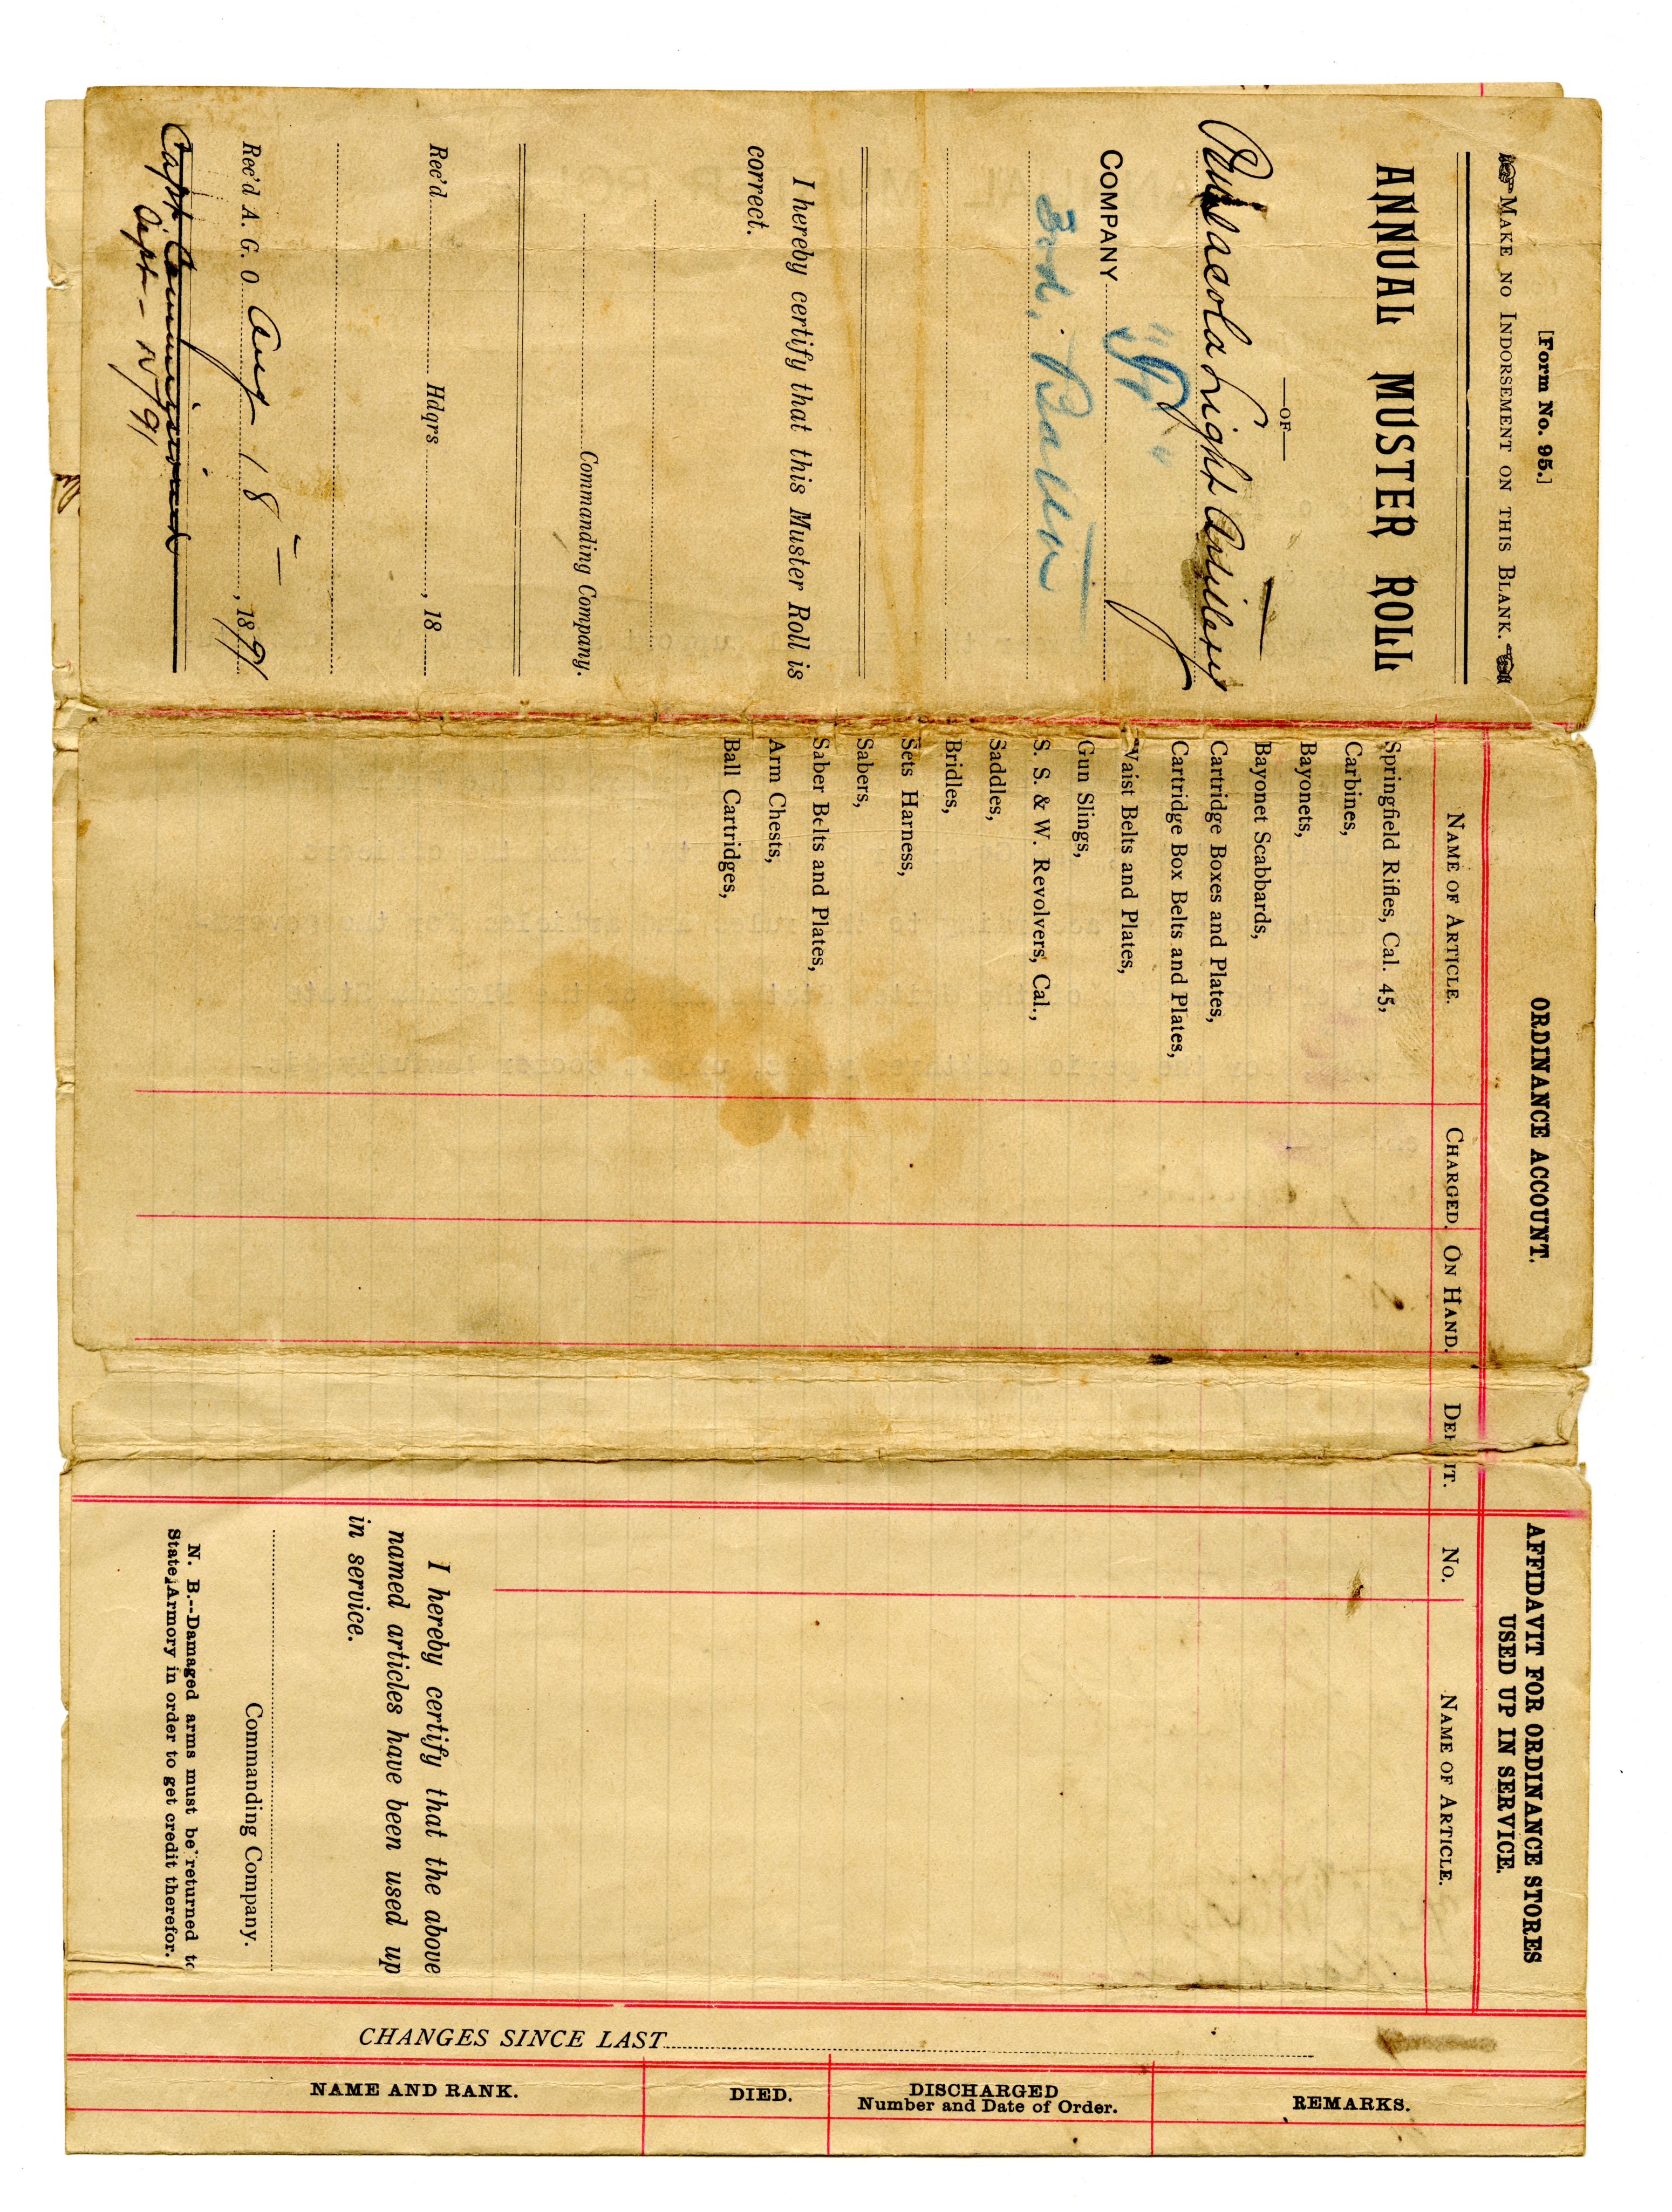 [Form No. 95.]
MAKE NO INDORSEMENT ON THIS BLANK.
ANNUAL MUSTER ROLL
—OF—
Pensacola Light Artillery
COMPANY
3rd. Battn
I hereby certify that this Muster Roll is
correct.
Commanding Company.
Rec'd Hdqrs. , 18
Rec'd A. G. O Aug 18 , 1891
Capt. Commissioned
Sept - 2/91
ORDINANCE ACCOUNT.
NAME OF ARTICLE. CHARGED. ON HAND. DEF IT.
Springfield Rifles, Cal. 45,
Carbines,
Bayonets,
Bayonet Scabbards,
Cartridge Boxes and Plates,
Cartridge Box Belts and Plates,
Waist Belts and Plates,
Gun Slings,
S. S. & W. Revolvers, Cal.,
Saddles,
Bridles,
Sets Harness,
Sabers,
Saber Belts and Plates,
Arm Chests,
Ball Cartridges,
AFFIDAVIT FOR ORDINANCE STORES
USED UP IN SERVICE.
No. NAME OF ARTICLE.
I hereby certify that the above
named articles have been used up
in service.
Commanding Company.
N. B.--Damaged arms must be returned to
State Armory in order to get credit therefor.
CHANGES SINCE LAST
NAME AND RANK. DIED. DISCHARGED REMARKS.
Number and Date of Order.